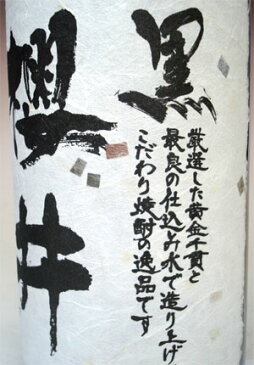 黒
櫻井
厳選した黄金千貫と
最良の仕込み水で造り上げ
こだわり焼酎の逸品です